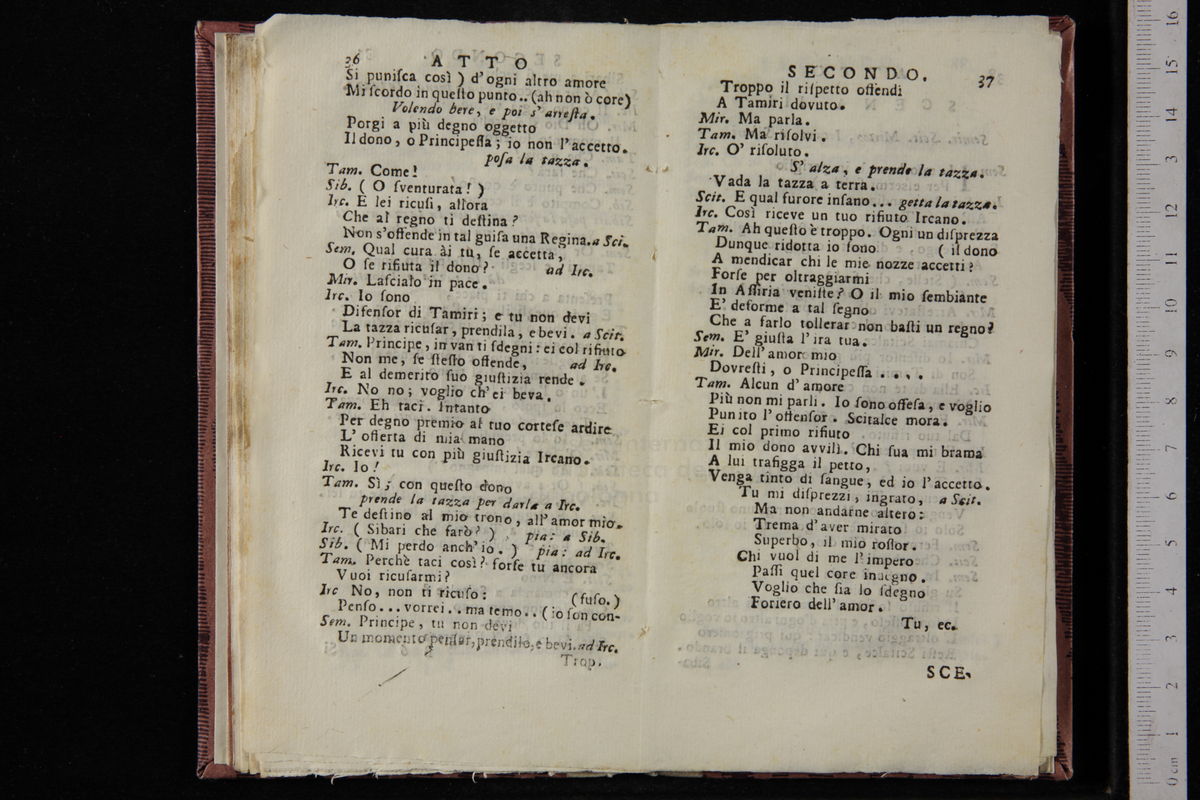 36 ATTO
Si puniſca così ) d'ogni altro amore
Mi ſcordo in queſto punto.. (ah non ò core)
Volendo bere, e poi s' arreſta.
Porgi a più degno oggetto
Il dono, o Principeſſa; io non l'accetto.
poſa la tazza.
Tam. Come!
Sib. ( O ſventurata! )
Irc. E lei ricuſi, allora
Che al regno ti deſtina?
Non s'offende in tal guiſa una Regina. a Sci.
Sem. Qual cura ài tu, ſe accetta,
O ſe rifiuta il dono? ad Irc.
Mir. Laſcialo in pace.
Irc. Io ſono
Difenſor di Tamiri; e tu non devi
La tazza ricuſar, prendila, e bevi. a Scit.
Tam. Principe, in van ti ſdegni: ei col rifiuto
Non me, ſe ſteſſo offende, ad Irc.
E al demerito ſuo giuſtizia rende.
Irc. No no; voglio ch'ei beva.
Tam. Eh taci. Intanto
Per degno premio al tuo corteſe ardire
L' offerta di mia mano
Ricevi tu con più giuſtizia Ircano.
Irc. Io!
Tam. Sì; con queſto dono
prende la tazza per darla a Irc.
Te deſtino al mio trono, all'amor mio.
Irc. ( Sibari che farò? ) pia: a Sib.
Sib. ( Mi perdo anch'io. ) pia: ad Irc.
Tam. Perchè taci così? forſe tu ancora
Vuoi ricuſarmi?
Irc No, non ti ricuſo: (fuſo.)
Penſo... vorrei.. ma temo.. ( io ſon con-
Sem. Principe, tu non devi
Un momento penſar, prendilo, e bevi. ad Irc.
Trop.
SECONDO. 37
Troppo il riſpetto offendi
A Tamiri dovuto.
Mir. Ma parla.
Tam. Ma riſolvi.
Irc. O' riſoluto.
S' alza, e prende la tazza.
Vada la tazza a terra.
Scit. E qual furore inſano... getta la tazza.
Irc. Così riceve un tuo rifiuto Ircano.
Tam. Ah queſto è troppo. Ogni un diſprezza
Dunque ridotta io ſono ( il dono
A mendicar chi le mie nozze accetti?
Forſe per oltraggiarmi
In Aſſiria veniſte? O il mio ſembiante
E' deforme a tal ſegno
Che a farlo tollerar non baſti un regno?
Sem. E' giuſta l'ira tua.
Mir. Dell'amor mio
Dovreſti, o Principeſſa ....
Tam. Alcun d'amore
Più non mi parli. Io ſono offeſa, e voglio
Punito l'offenſor. Scitalce mora.
Ei col primo rifiuto
Il mio dono avvilì. Chi ſua mi brama
A lui trafigga il petto,
Venga tinto di ſangue, ed io l'accetto.
Tu mi diſprezzi, ingrato, a Scit.
Ma non andarne altero:
Trema d'aver mirato
Superbo, il mio roſſor.
Chi vuol di me l'impero
Paſſi quel core indegno.
Voglio che ſia lo ſdegno
Foriero dell'amor.
Tu, ec.
SCE.